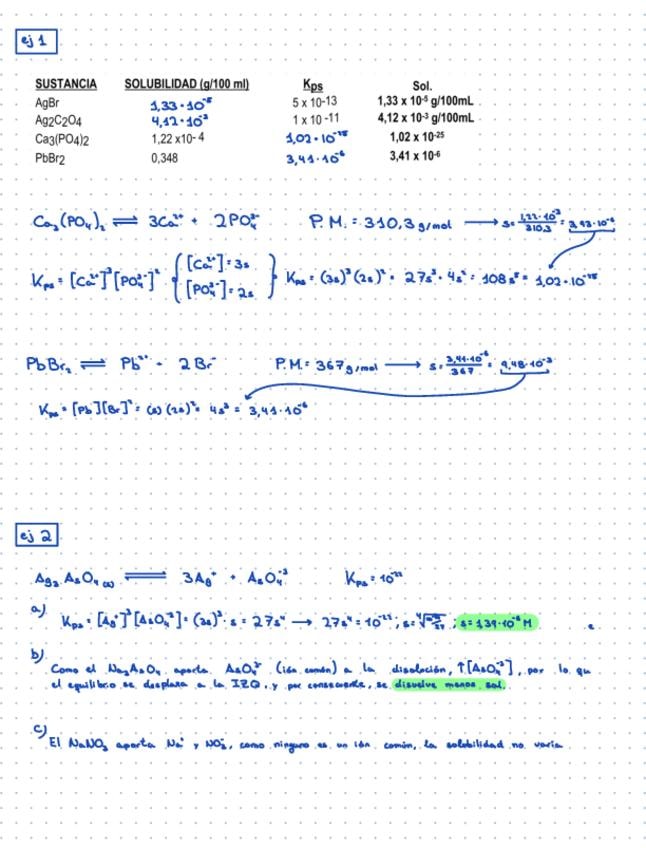 ej 1
SUSTANCIA SOLUBILIDAD (g/100 ml) Kps Sol.
AgBr 1,33·10⁻⁵ 5 x 10-13 1,33 x 10⁻⁵ g/100mL
Ag2C2O4 4,12·10⁻³ 1 x 10 -11 4,12 x 10⁻³ g/100mL
Ca3(PO4)2 1,22 x10- 4 1,02·10⁻²⁵ 1,02 x 10⁻²⁵
PbBr2 0,348 3,41·10⁻⁶ 3,41 x 10⁻⁶
Ca₃(PO₄)₂ ⇌ 3Ca²⁺ + 2PO₄³⁻ P.M. = 310,3 g/mol → s = 1,22·10⁻³/310,3 = 3,93·10⁻⁶
Kps = [Ca²⁺]³[PO₄³⁻]² { [Ca²⁺] = 3s [PO₄³⁻] = 2s } Kps = (3s)³(2s)² = 27s³·4s² = 108s⁵ = 1,02·10⁻²⁵
PbBr₂ ⇌ Pb²⁺ + 2Br⁻ P.M = 367 g/mol → s = 3,41·10⁻⁶/367 = 9,48·10⁻³
Kps = [Pb][Br]² = (s)(2s)² = 4s³ = 3,41·10⁻⁶
ej 2
Ag₃AsO₄ (s) ⇌ 3Ag⁺ + AsO₄⁻³ Kps = 10⁻²²
a) Kps = [Ag⁺]³[AsO₄⁻³] = (3s)³·s = 27s⁴ → 27s⁴ = 10⁻²² ; s = ⁴√10⁻²²/27 ; s = 1,39·10⁻⁶ M
b) Como el Na₃AsO₄ aporta AsO₄³⁻ (ión común) a la disolución, ↑[AsO₄⁻³], por lo que
el equilibrio se desplaza a la IZQ, y por consecuente, se disuelve menos sal.
c) El NaNO₃ aporta Na⁺ y NO₃⁻, como ninguno es un ión común, la solubilidad no varía